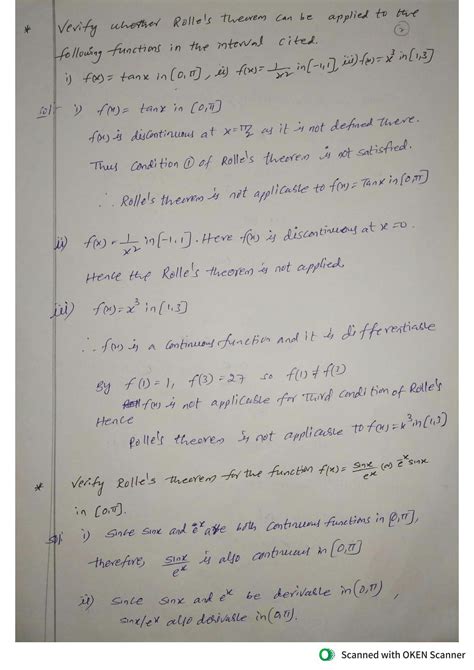 * Verify whether Rolle's Theorem can be applied to the
following functions in the interval cited.
②
i) f(x) = tanx in [0,π], ii) f(x) = 1/x² in [-1,1], iii) f(x) = x³ in [1,3]
Sol:- i) f(x) = tanx in [0,π]
f(x) is discontinuous at x=π/2 as it is not defined there.
Thus Condition ① of Rolle's theorem is not satisfied.
∴ Rolle's theorem is not applicable to f(x) = Tanx in [0,π]
ii) f(x) = 1/x² in [-1,1]. Here f(x) is discontinuous at x=0.
Hence the Rolle's theorem is not applied,
iii) f(x) = x³ in [1,3]
∴ f(x) is a continuous function and it is differentiable
By f(1)=1, f(3)=27 so f(1) ≠ f(3)
f(x) is not applicable for Third condition of Rolle's
Hence
Rolle's theorem is not applicable to f(x) = x³ in [1,3]
* Verify Rolle's theorem for the function f(x) = sinx/eˣ (or) e⁻ˣ sinx
in [0,π].
Sol: i) Since sinx and eˣ are both continuous functions in [0,π],
therefore, sinx/eˣ is also continuous in [0,π]
ii) since sinx and eˣ be derivable in (0,π),
sinx/eˣ also derivable in (0,π).
Scanned with OKEN Scanner